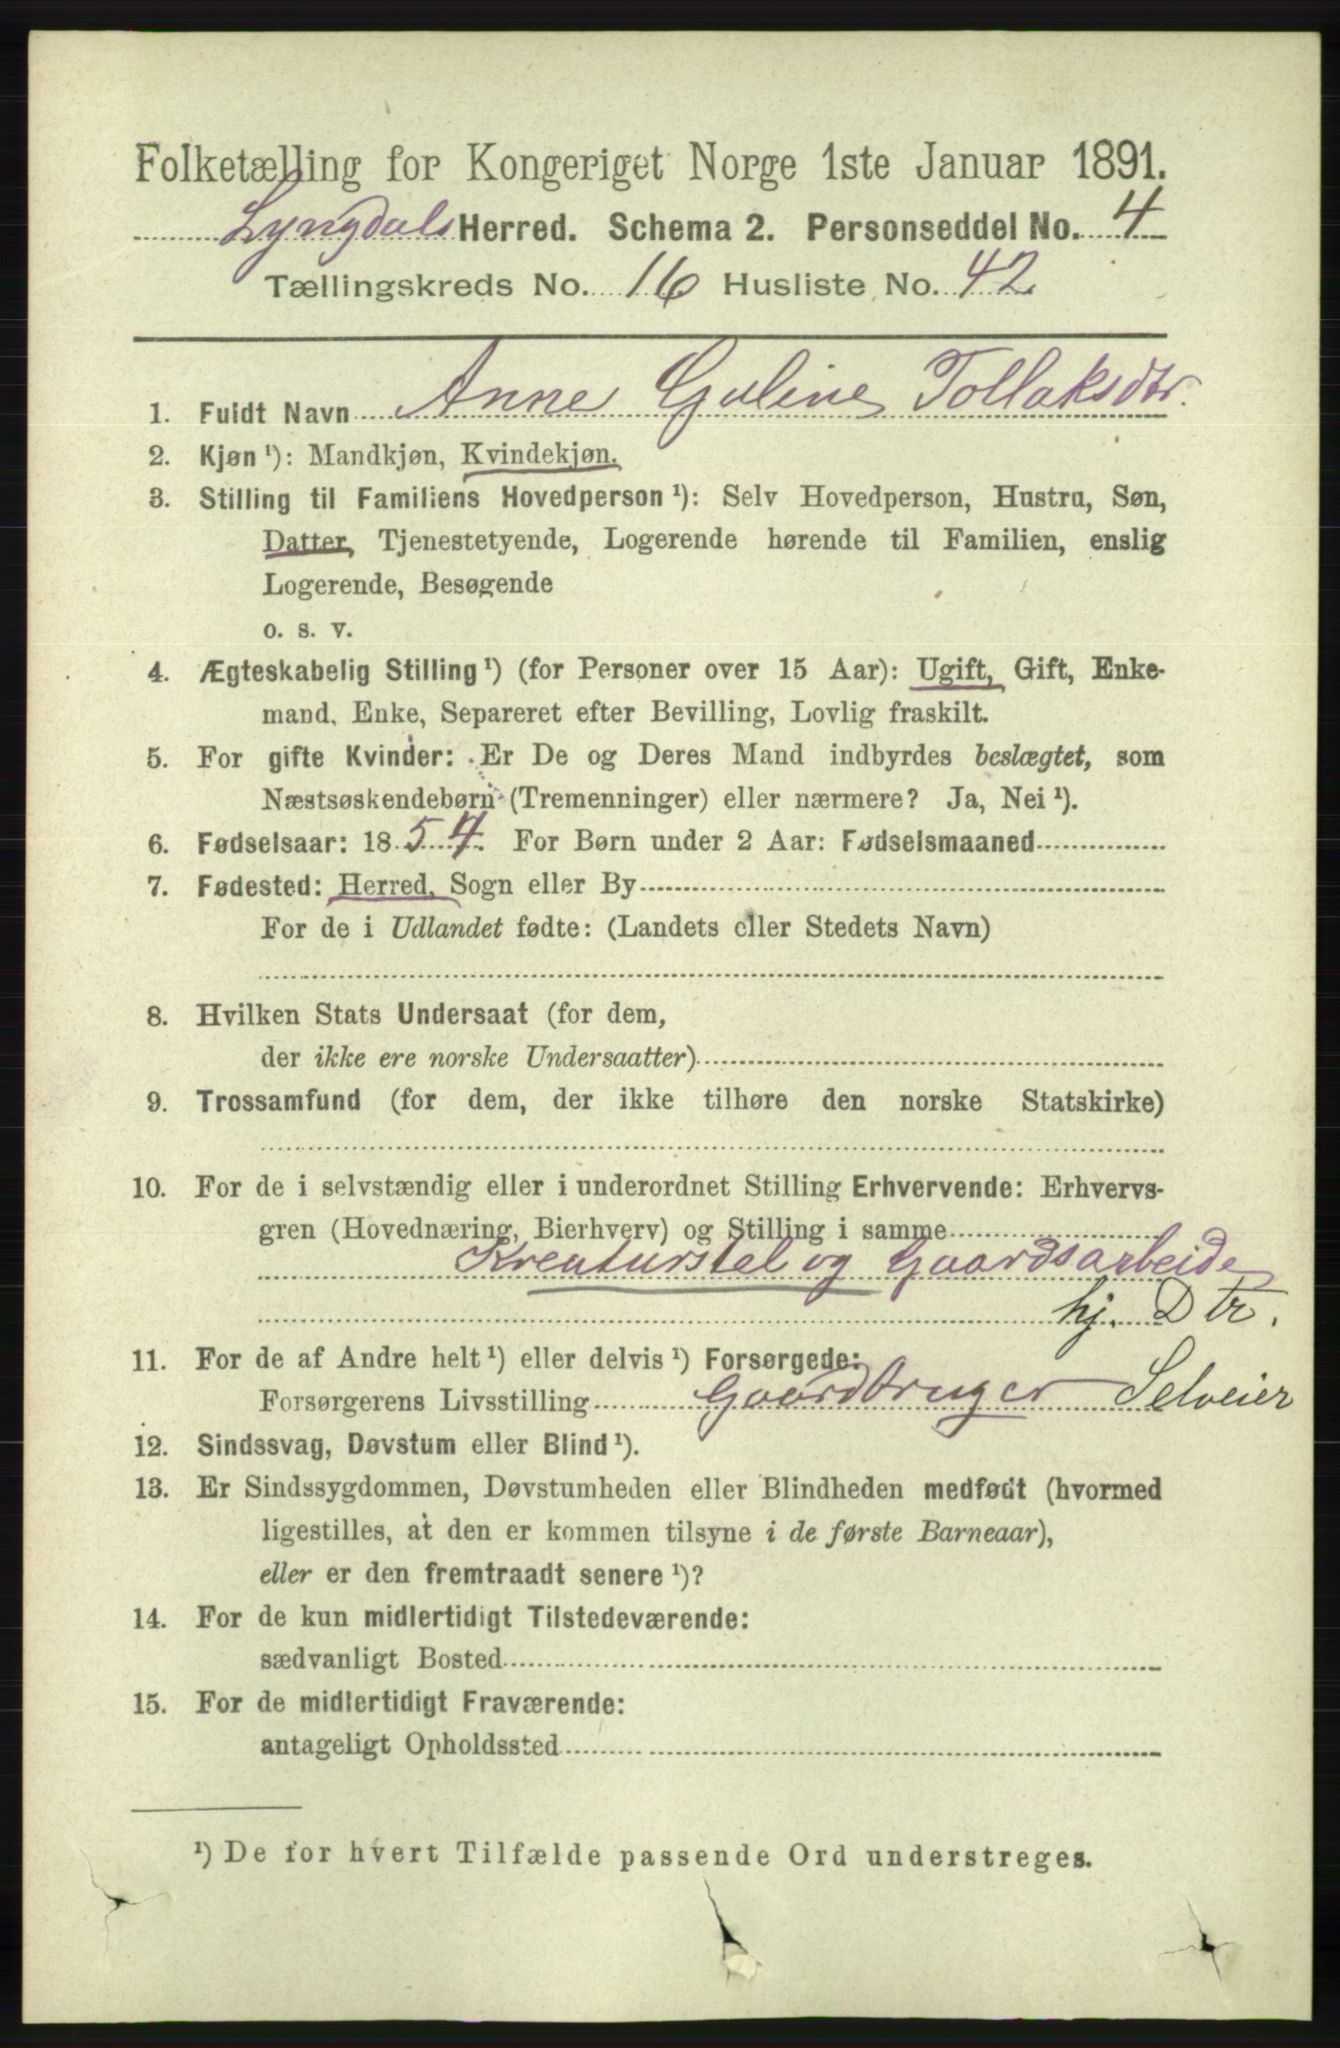 Folketælling for Kongeriget Norge 1ste Januar 1891.
Lyngdals Herred. Schema 2. Personseddel No. 4
Tællingskreds No. 16 Husliste No. 42
1. Fuldt Navn Anne Guline Tollaksdtr.
2. Kjøn ¹): Mandkjøn, Kvindekjøn.
3. Stilling til Familiens Hovedperson ¹): Selv Hovedperson, Hustru, Søn,
Datter, Tjenestetyende, Logerende hørende til Familien, enslig
Logerende, Besøgende
o. s. v.
4. Ægteskabelig Stilling ¹) (for Personer over 15 Aar): Ugift, Gift, Enke-
mand, Enke, Separeret efter Bevilling, Lovlig fraskilt.
5. For gifte Kvinder: Er De og Deres Mand indbyrdes beslægtet, som
Næstsøskendebørn (Tremenninger) eller nærmere? Ja, Nei ¹).
6. Fødselsaar: 1854. For Børn under 2 Aar: Fødselsmaaned
7. Fødested: Herred, Sogn eller By
For de i Udlandet fødte: (Landets eller Stedets Navn)
8. Hvilken Stats Undersaat (for dem,
der ikke ere norske Undersaatter)
9. Trossamfund (for dem, der ikke tilhøre den norske Statskirke)
10. For de i selvstændig eller i underordnet Stilling Erhvervende: Erhvervs-
gren (Hovednæring, Bierhverv) og Stilling i samme
Kreaturstel og Gaardsarbeide
hj. Dtr.
11. For de af Andre helt ¹) eller delvis ¹) Forsørgede:
Forsørgerens Livsstilling Gaardbruger Selveier
12. Sindssvag, Døvstum eller Blind ¹).
13. Er Sindssygdommen, Døvstumheden eller Blindheden medfødt (hvormed
ligestilles, at den er kommen tilsyne i de første Barneaar),
eller er den fremtraadt senere ¹)?
14. For de kun midlertidigt Tilstedeværende:
sædvanligt Bosted
15. For de midlertidigt Fraværende:
antageligt Opholdssted
¹) De for hvert Tilfælde passende Ord understreges.